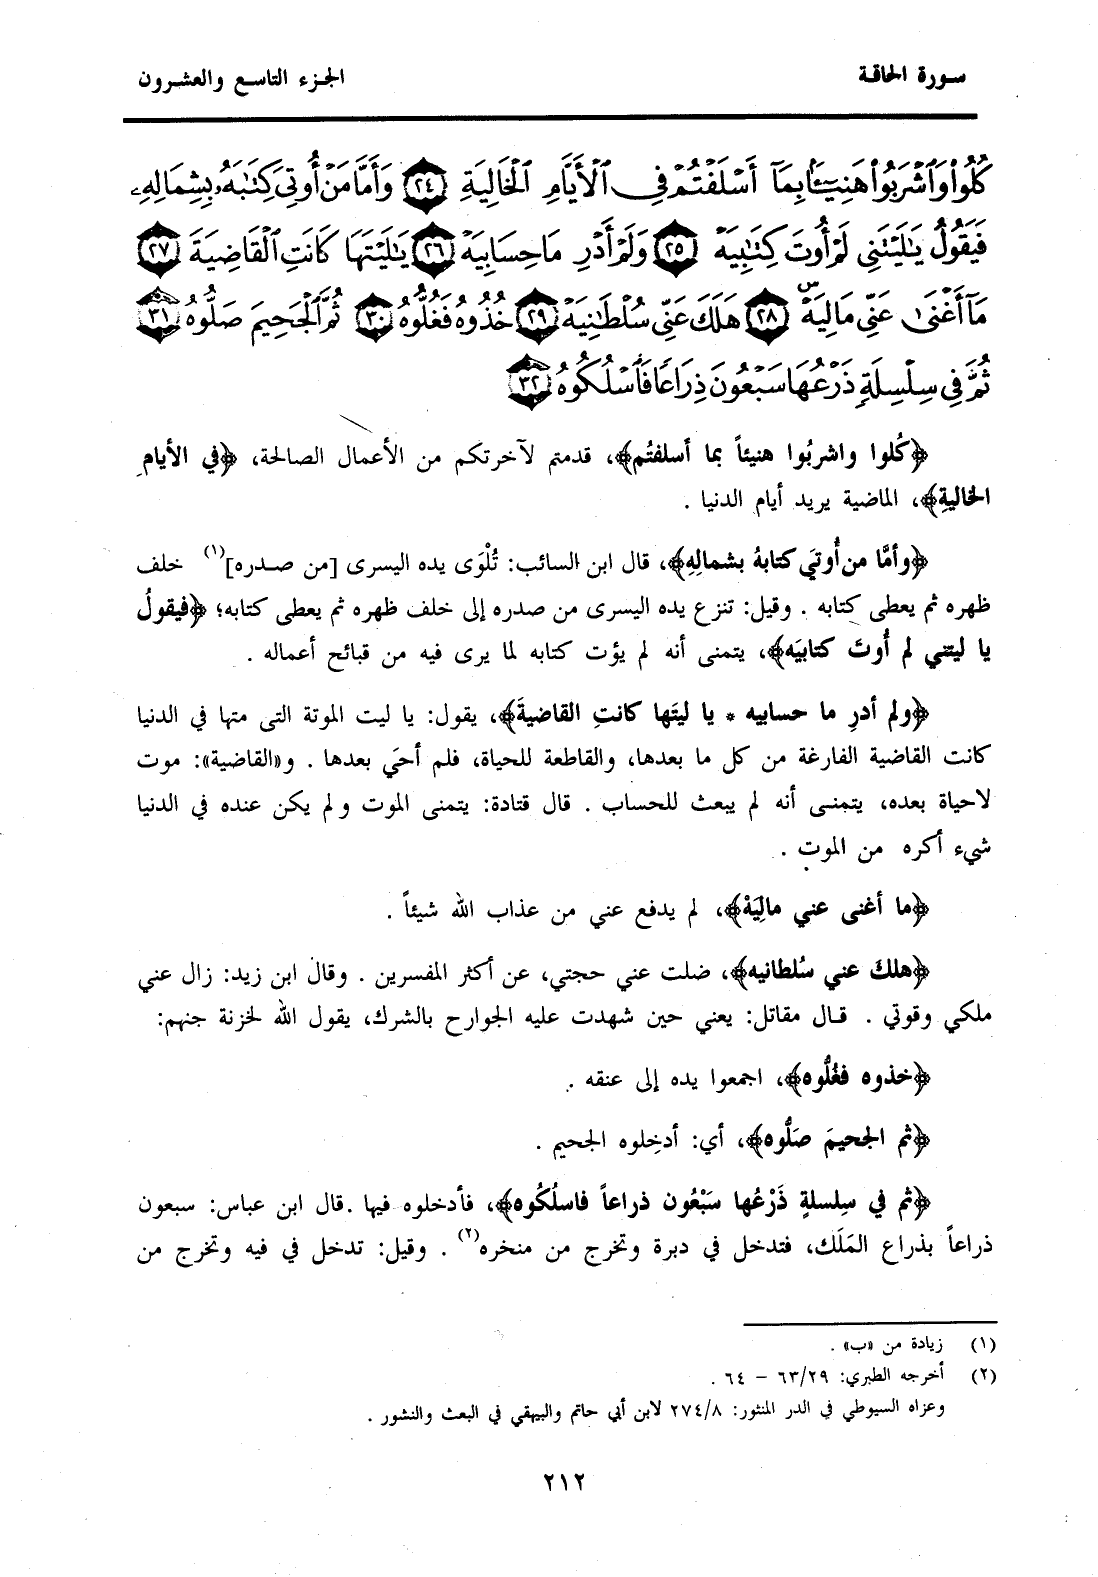 سورة الحاقة
الجزء التاسع والعشرون
كُلُوا۟ وَٱشْرَبُوا۟ هَنِيٓـًٔۢا بِمَآ أَسْلَفْتُمْ فِى ٱلْأَيَّامِ ٱلْخَالِيَةِ ﴿٢٤﴾ وَأَمَّا مَنْ أُوتِىَ كِتَٰبَهُۥ بِشِمَالِهِۦ
فَيَقُولُ يَٰلَيْتَنِى لَمْ أُوتَ كِتَٰبِيَهْ ﴿٢٥﴾ وَلَمْ أَدْرِ مَا حِسَابِيَهْ ﴿٢٦﴾ يَٰلَيْتَهَا كَانَتِ ٱلْقَاضِيَةَ ﴿٢٧﴾
مَآ أَغْنَىٰ عَنِّى مَالِيَهْ ۜ ﴿٢٨﴾ هَلَكَ عَنِّى سُلْطَٰنِيَهْ ﴿٢٩﴾ خُذُوهُ فَغُلُّوهُ ﴿٣٠﴾ ثُمَّ ٱلْجَحِيمَ صَلُّوهُ ﴿٣١﴾
ثُمَّ فِى سِلْسِلَةٍ ذَرْعُهَا سَبْعُونَ ذِرَاعًا فَٱسْلُكُوهُ ﴿٣٢﴾
﴿كُلوا واشربُوا هنيئاً بما أسلفتُم﴾، قدمتم لآخرتكم من الأعمال الصالحة، ﴿في الأيامِ
الخاليةِ﴾، الماضية يريد أيام الدنيا .
﴿وأمَّا من أُوتيَ كتابهُ بشمالِهِ﴾، قال ابن السائب: تُلْوَى يده اليسرى [من صدره](١) خلف
ظهره ثم يعطى كتابه . وقيل: تنزع يده اليسرى من صدره إلى خلف ظهره ثم يعطى كتابه؛ ﴿فيقولُ
يا ليتني لم أُوتَ كتابيَه﴾، يتمنى أنه لم يؤت كتابه لما يرى فيه من قبائح أعماله .
﴿ولم أدرِ ما حسابيه * يا ليتَها كانتِ القاضيةَ﴾، يقول: يا ليت الموتة التى متها في الدنيا
كانت القاضية الفارغة من كل ما بعدها، والقاطعة للحياة، فلم أحيَ بعدها . و«القاضية»: موت
لاحياة بعده، يتمنى أنه لم يبعث للحساب . قال قتادة: يتمنى الموت ولم يكن عنده في الدنيا
شيء أكره من الموت .
﴿ما أغنى عني مالِيَهْ﴾، لم يدفع عني من عذاب الله شيئاً .
﴿هلكَ عني سُلطانيه﴾، ضلت عني حجتي، عن أكثر المفسرين . وقال ابن زيد: زال عني
ملكي وقوتي . قال مقاتل: يعني حين شهدت عليه الجوارح بالشرك، يقول الله لخزنة جنهم:
﴿خذوه فغُلُّوه﴾، اجمعوا يده إلى عنقه .
﴿ثم الجحيمَ صَلُّوه﴾، أي: أدخِلوه الجحيم .
﴿ثم في سِلسلةٍ ذَرْعُها سَبْعُون ذراعاً فاسلُكُوه﴾، فأدخلوه فيها .قال ابن عباس: سبعون
ذراعاً بذراع المَلَك، فتدخل في دبرة وتخرج من منخره(٢) . وقيل: تدخل في فيه وتخرج من
(١) زيادة من «ب» .
(٢) أخرجه الطبري: ٦٣/٢٩ - ٦٤ .
وعزاه السيوطي في الدر المنثور: ٢٧٤/٨ لابن أبي حاتم والبيهقي في البعث والنشور .
٢١٢